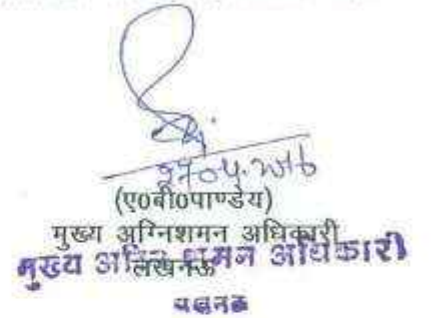 27.04.2016
(ए०बी०पाण्डेय)
मुख्य अग्निशमन अधिकारी
लखनऊ
मुख्य अग्नि शमन अधिकारी
लखनऊ